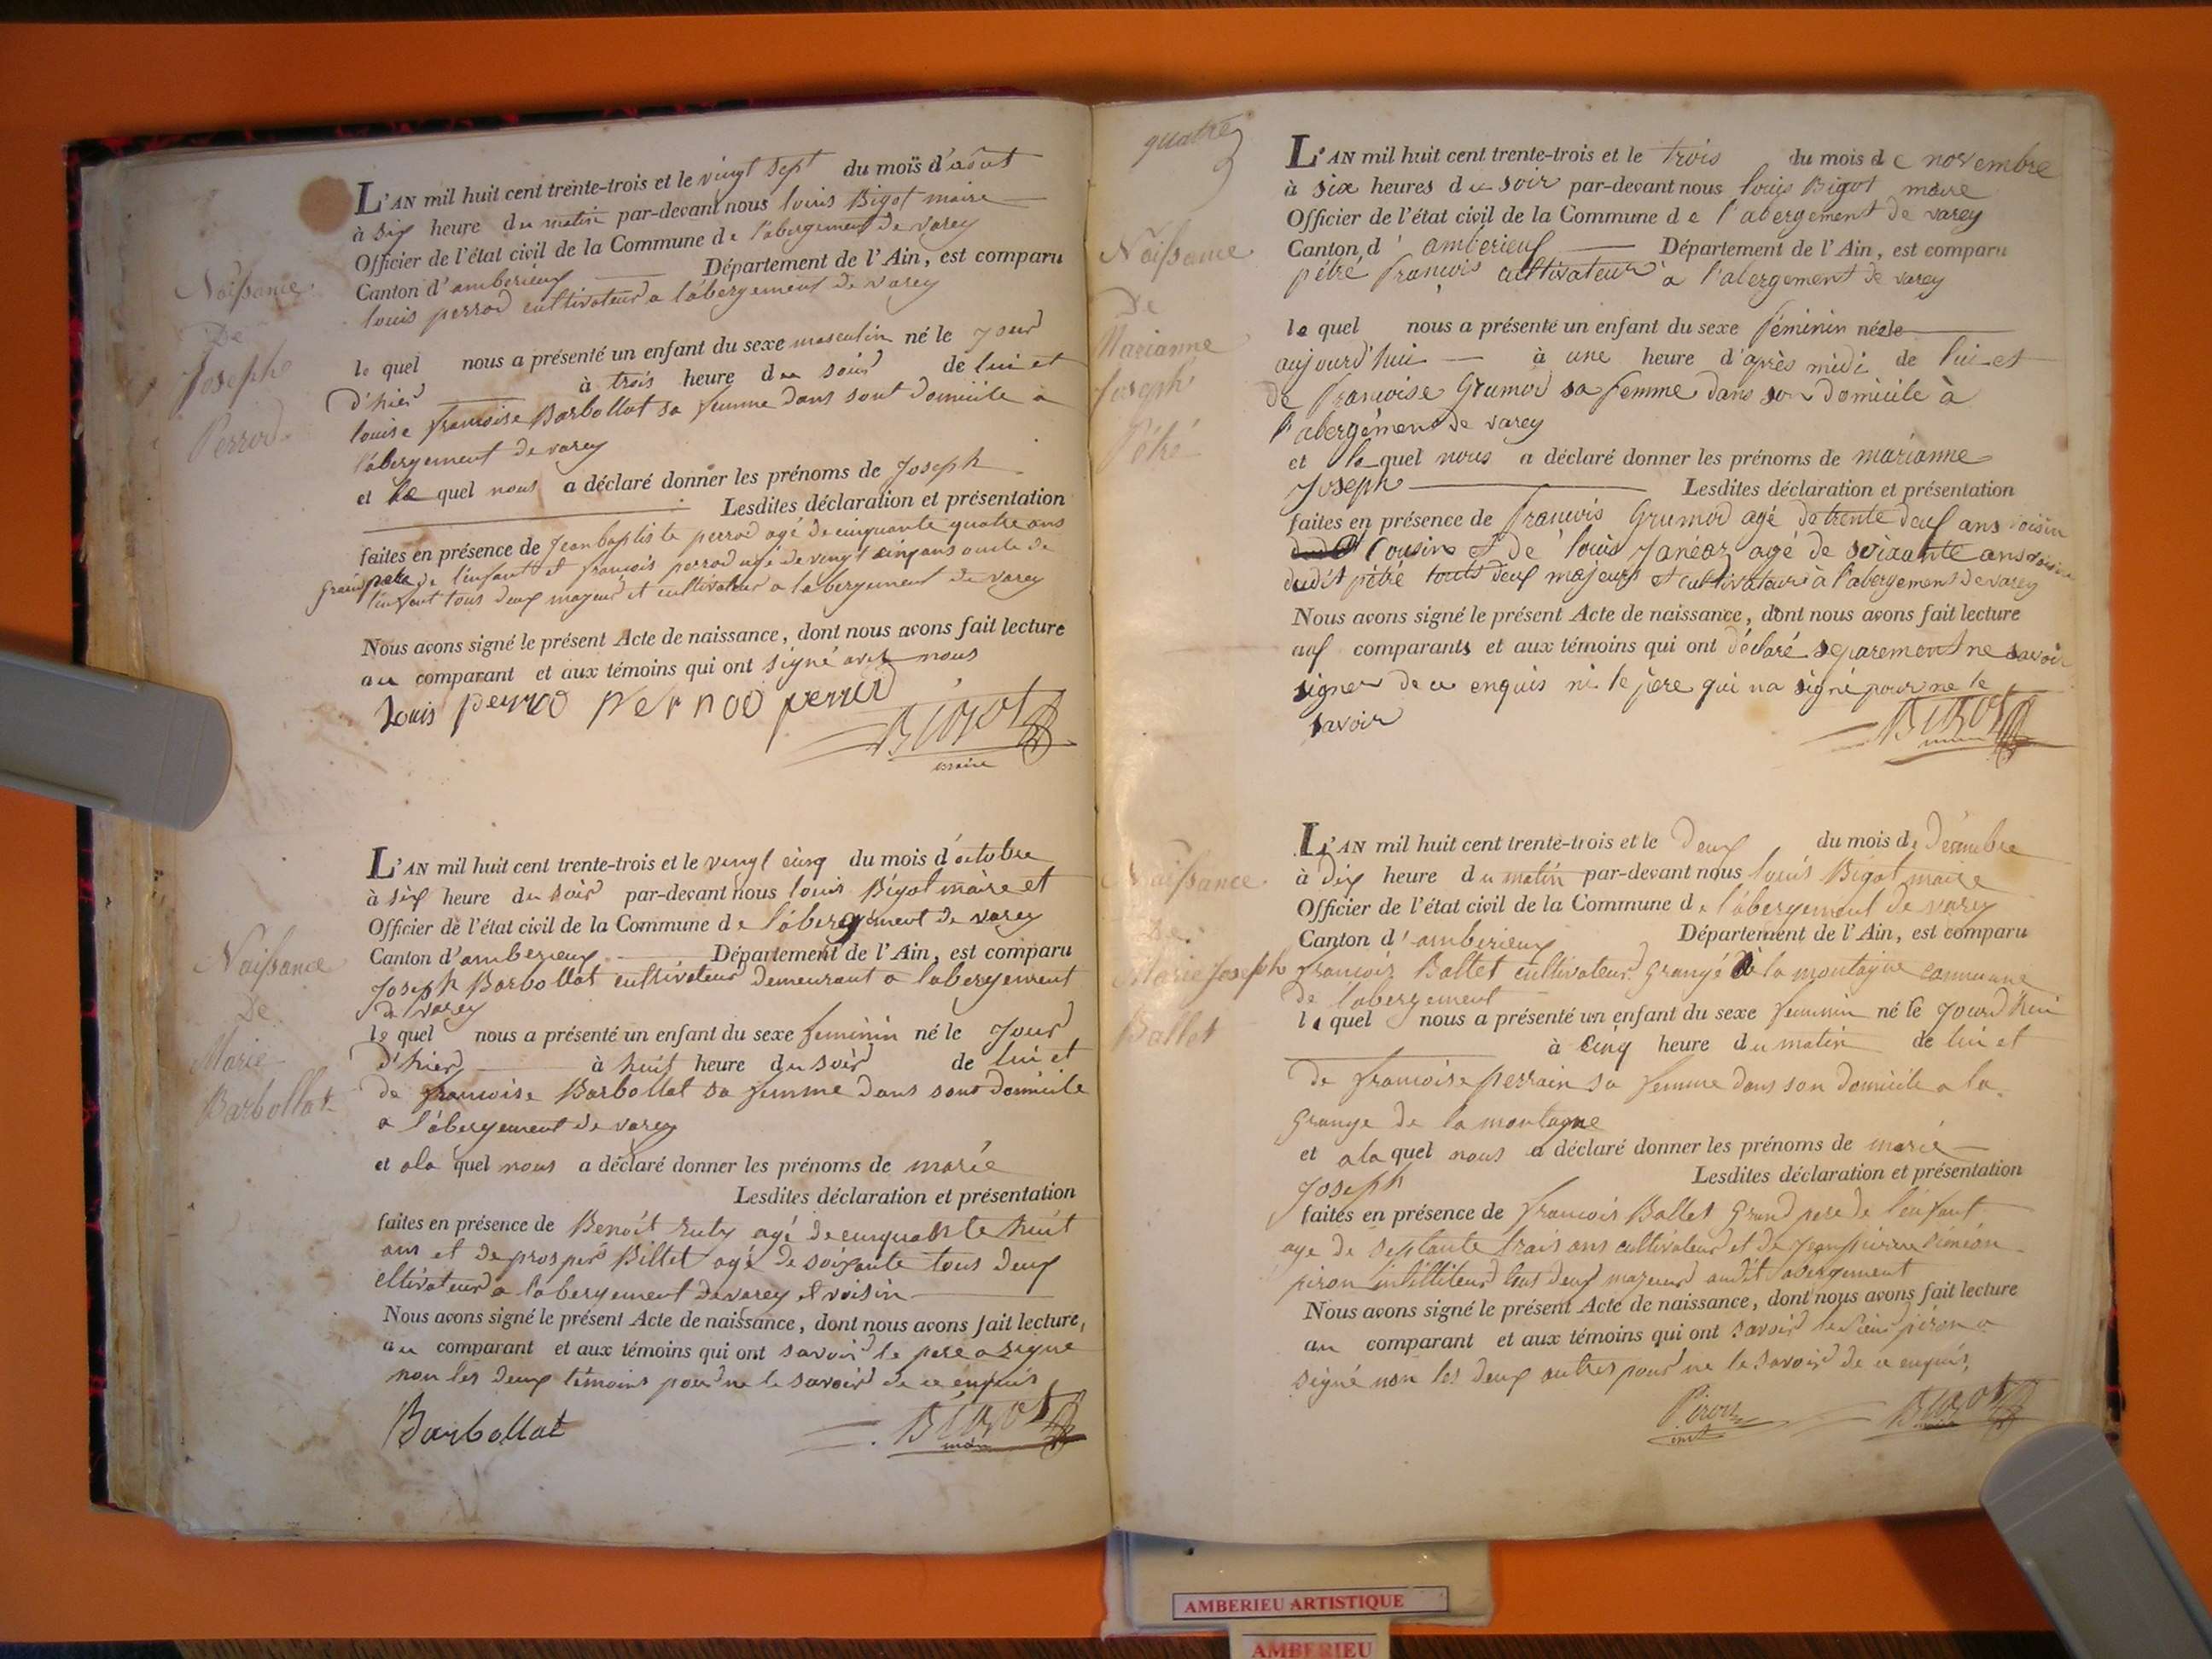 Naissance
De
Joseph
Perrod
L'AN mil huit cent trente-trois et le vingt sept du mois d'août
à six heure du matin par-devant nous louis Bigot maire
Officier de l'état civil de la Commune de l'abergement de varey
Canton d'amberieux Département de l'Ain, est comparu
louis perrod cultivateur a l'abergement de varey
le quel nous a présenté un enfant du sexe masculin né le jour
d'hier à trois heure du soir de lui et
louise francoise Barbollat sa femme dans sont domicile a
l'abergement de varey
et le quel nous a déclaré donner les prénoms de Joseph
Lesdites déclaration et présentation
faites en présence de Jean baptiste perrod agé de cinquante quatre ans
grand pere de l'enfant et francois perrod agé de vingt cinq ans oncle de
l'enfant tous deux majeur et cultivateur a l'abergement de varey
Nous avons signé le présent Acte de naissance, dont nous avons fait lecture
au comparant et aux témoins qui ont signé avec nous
Louis perrod perrod
BIGOT
maire
Naissance
De
Marie
Barbollat
L'AN mil huit cent trente-trois et le vingt cinq du mois d'octobre
à six heure du soir par-devant nous louis Bigot maire et
Officier de l'état civil de la Commune de l'abergement de varey
Canton d'amberieux Département de l'Ain, est comparu
Joseph Barbollat cultivateur demeurant a l'abergement
de varey
le quel nous a présenté un enfant du sexe feminin né le jour
d'hier à huit heure du soir de lui et
de francoise Barbollat sa femme dans sont domicile
a l'abergement de varey
et ala quel nous a déclaré donner les prénoms de marie
Lesdites déclaration et présentation
faites en présence de Benoit agé de cinquante huit
ans et de prosper Billet agé de soixante tous deux
cltivateur a l'abergement de varey et voisin
Nous avons signé le présent Acte de naissance, dont nous avons fait lecture,
au comparant et aux témoins qui ont savoir le pere a signe
non les deux témoins pour ne le savoir de ce enquis
Barbollat BIGOT
quatre
Naissance
De
Marianne
Joseph
Pétré
L'AN mil huit cent trente-trois et le trois du mois de novembre
à six heures du soir par-devant nous louis Bigot maire
Officier de l'état civil de la Commune de l'abergement de varey
Canton d'amberieux Département de l'Ain, est comparu
pétré françois cultivateur a l'abergement de varey
le quel nous a présenté un enfant du sexe féminin néele
aujourd'hui à une heure d'après midi de lui et
de francoise Grumod sa femme dans son domicile à
l'abergement de varey
et le quel nous a déclaré donner les prénoms de marianne
Joseph Lesdites déclaration et présentation
faites en présence de francois Grumod agé de trente deux ans voisin
Cousin et de louis agé de soixante ans voisin
dudit pétré touts deux majeurs et cultivateurs à l'abergement de varey
Nous avons signé le présent Acte de naissance, dont nous avons fait lecture
aux comparants et aux témoins qui ont déclaré separement ne savoir
signer de ce enquis ni le père qui na signé pour ne le
savoir
BIGOT
Naissance
De
Marie Joseph
Ballet
L'AN mil huit cent trente-trois et le deux du mois de Décembre
à dix heure du matin par-devant nous louis Bigot maire
Officier de l'état civil de la Commune de l'abergement de varey
Canton d'amberieux Département de l'Ain, est comparu
francois Ballet cultivateur grangé de la montagne commune
de l'abergement
le quel nous a présenté un enfant du sexe feminin né le jourd'hui
à cinq heure du matin de lui et
de francoise perrain sa femme dans son domicile a la
grange de la montagne
et ala quel nous a déclaré donner les prénoms de marie
Joseph Lesdites déclaration et présentation
faites en présence de francois Ballet grand pere de l'enfant
age de septante trois ans cultivateur et de Jean pierre
piron tous deux majeur audit abergement
Nous avons signé le présent Acte de naissance, dont nous avons fait lecture
au comparant et aux témoins qui ont savoir le sieur piron a
signé non les deux autres pour ne le savoir de ce enquis,
Piron BIGOT
AMBERIEU ARTISTIQUE
AMBERIEU